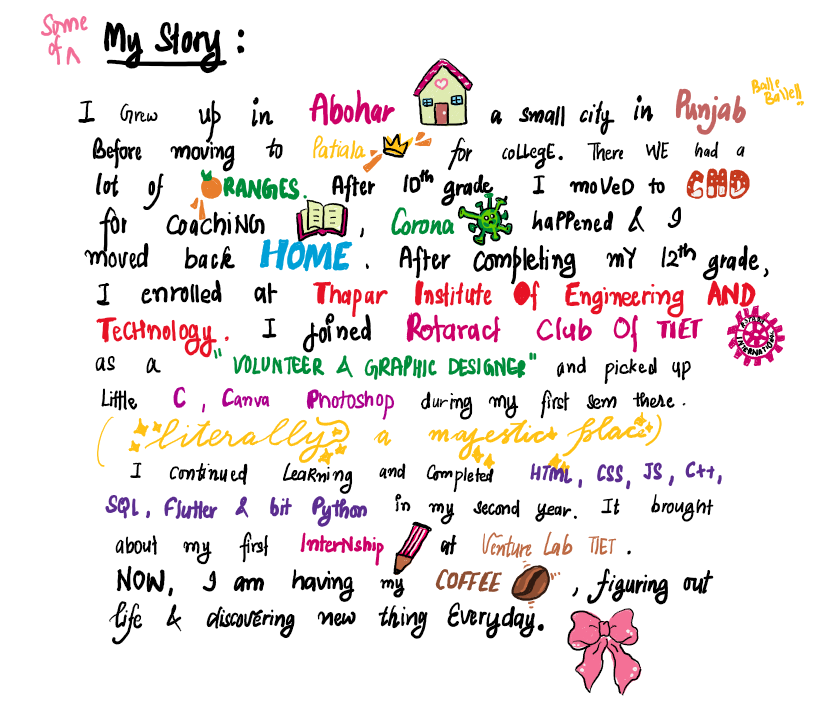 Some of ^ My Story :
I Grew up in Abohar a small city in Punjab Balle Balle!!
Before moving to Patiala for collegE. There WE had a
lot of ORANGES. After 10th grade I moveD to CHD
for CoachiNG , Corona haPPened & I
moved back HOME . After Completing mY 12th grade,
I enrolled at Thapar Institute Of Engineering AND
TecHnology. I joined Rotaract Club Of TIET ROTARY INTERNATIONAL
as a "VOLUNTEER & GRAPHIC DESIGNER" and picked up
Little C , Canva Photoshop during my first sem there.
(literally a majestic place)
I continued LeaRning and Completed HTML, CSS, JS, C++,
SQL, Flutter & bit Python in my second year. It brought
about my first InterNship at Venture Lab TIET .
NOW, I am having my COFFEE , figuring out
life & discovering new thing Everyday.